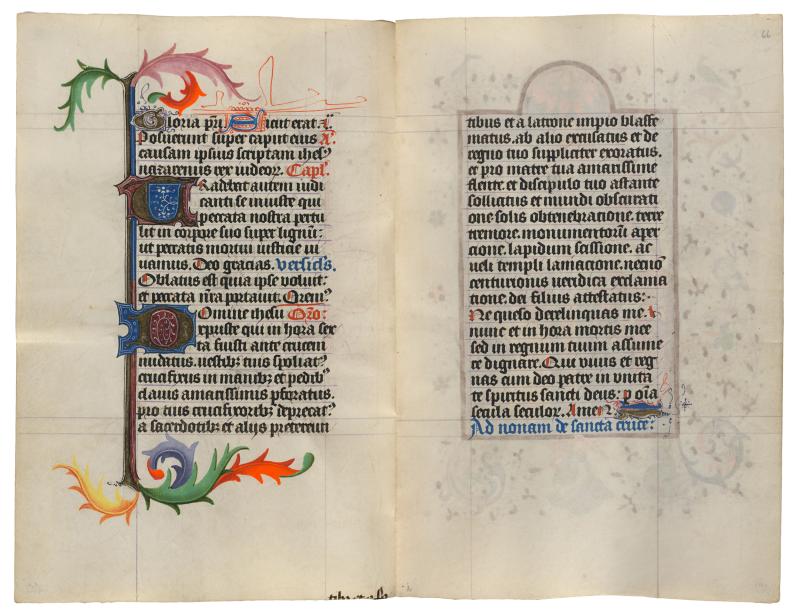 Gloria pr̄i Sicut erat. A͞
Posuerunt super caput eius X̄
causam ipsius scriptam ihesꝰ
nazarenus rex iudeoꝝ. Capl̄
Tradebat autem iudi
canti se iniuste qui
peccata nostra pertu
lit in corpore suo super lignū:
ut peccatis mortui iusticie vi
vamus. Deo gracias. versicls̄.
Oblatus est quia ipse voluit:
et peccata nr̄a portavit. Oremꝰ
Domine ihesu Oro:
xp̄iste qui in hora sex
ta fuisti ante crucem
nudatus. vestibꝫ tuis spoliatꝰ
crucifixus in manibꝫ et pedibꝰ
clavis amarissimis pforatus.
pro tuis crucifixoribꝫ deprecatꝰ
a sacerdotibꝫ et alijs pretereun
tibus et a latrone impio blasfe
matus. ab alio excusatus et de
regno tuo suppliciter exoratus.
et pro matre tua amarissime
flente. et discipulo tuo astante
sollicitus et mundi obscurati
one solis obtenebratione. terre
tremore. monumentorū aper
cione. lapidum scissione. ac
veli templi laniacione. necnō
centurionis veridica exclama
tione. dei filius attestatus:
Ne queso derelinquas me. X
nunc et in hora mortis mee
sed in regnum tuum assume
re dignare. Qui vivis et reg
nas cum deo patre in unita
te spiritus sancti deus: p oīa
secula seculoꝝ. Amen
Ad nonam de sancta cruce:
66